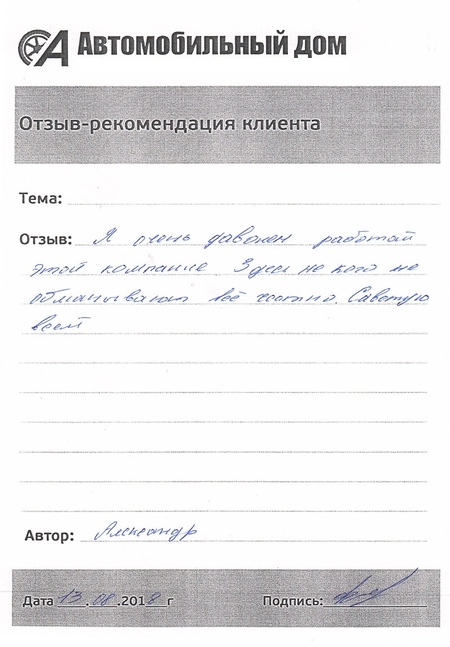 Автомобильный дом
Отзыв-рекомендация клиента
Тема:
Отзыв: Я очень даволен работай
этой компание. Здесь не кого не
обманывают всё честно. Саветую
всем
Автор: Александр
Дата 13.08.2018г Подпись: